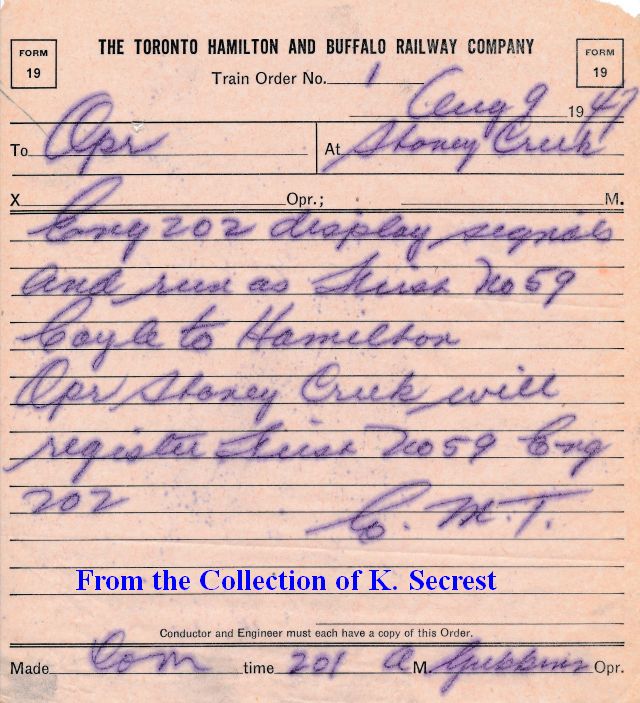 FORM 19
THE TORONTO HAMILTON AND BUFFALO RAILWAY COMPANY
FORM 19
Train Order No. 1
Aug 9 1947
To Opr At Stoney Creek
X Opr.; M.
Eng 202 display signals
and run as First No 59
Coyle to Hamilton
Opr Stoney Creek will
register First No 59 Eng
202 C. M. T.
From the Collection of K. Secrest
Conductor and Engineer must each have a copy of this Order.
Made Com time 201 A M. Gibbins Opr.